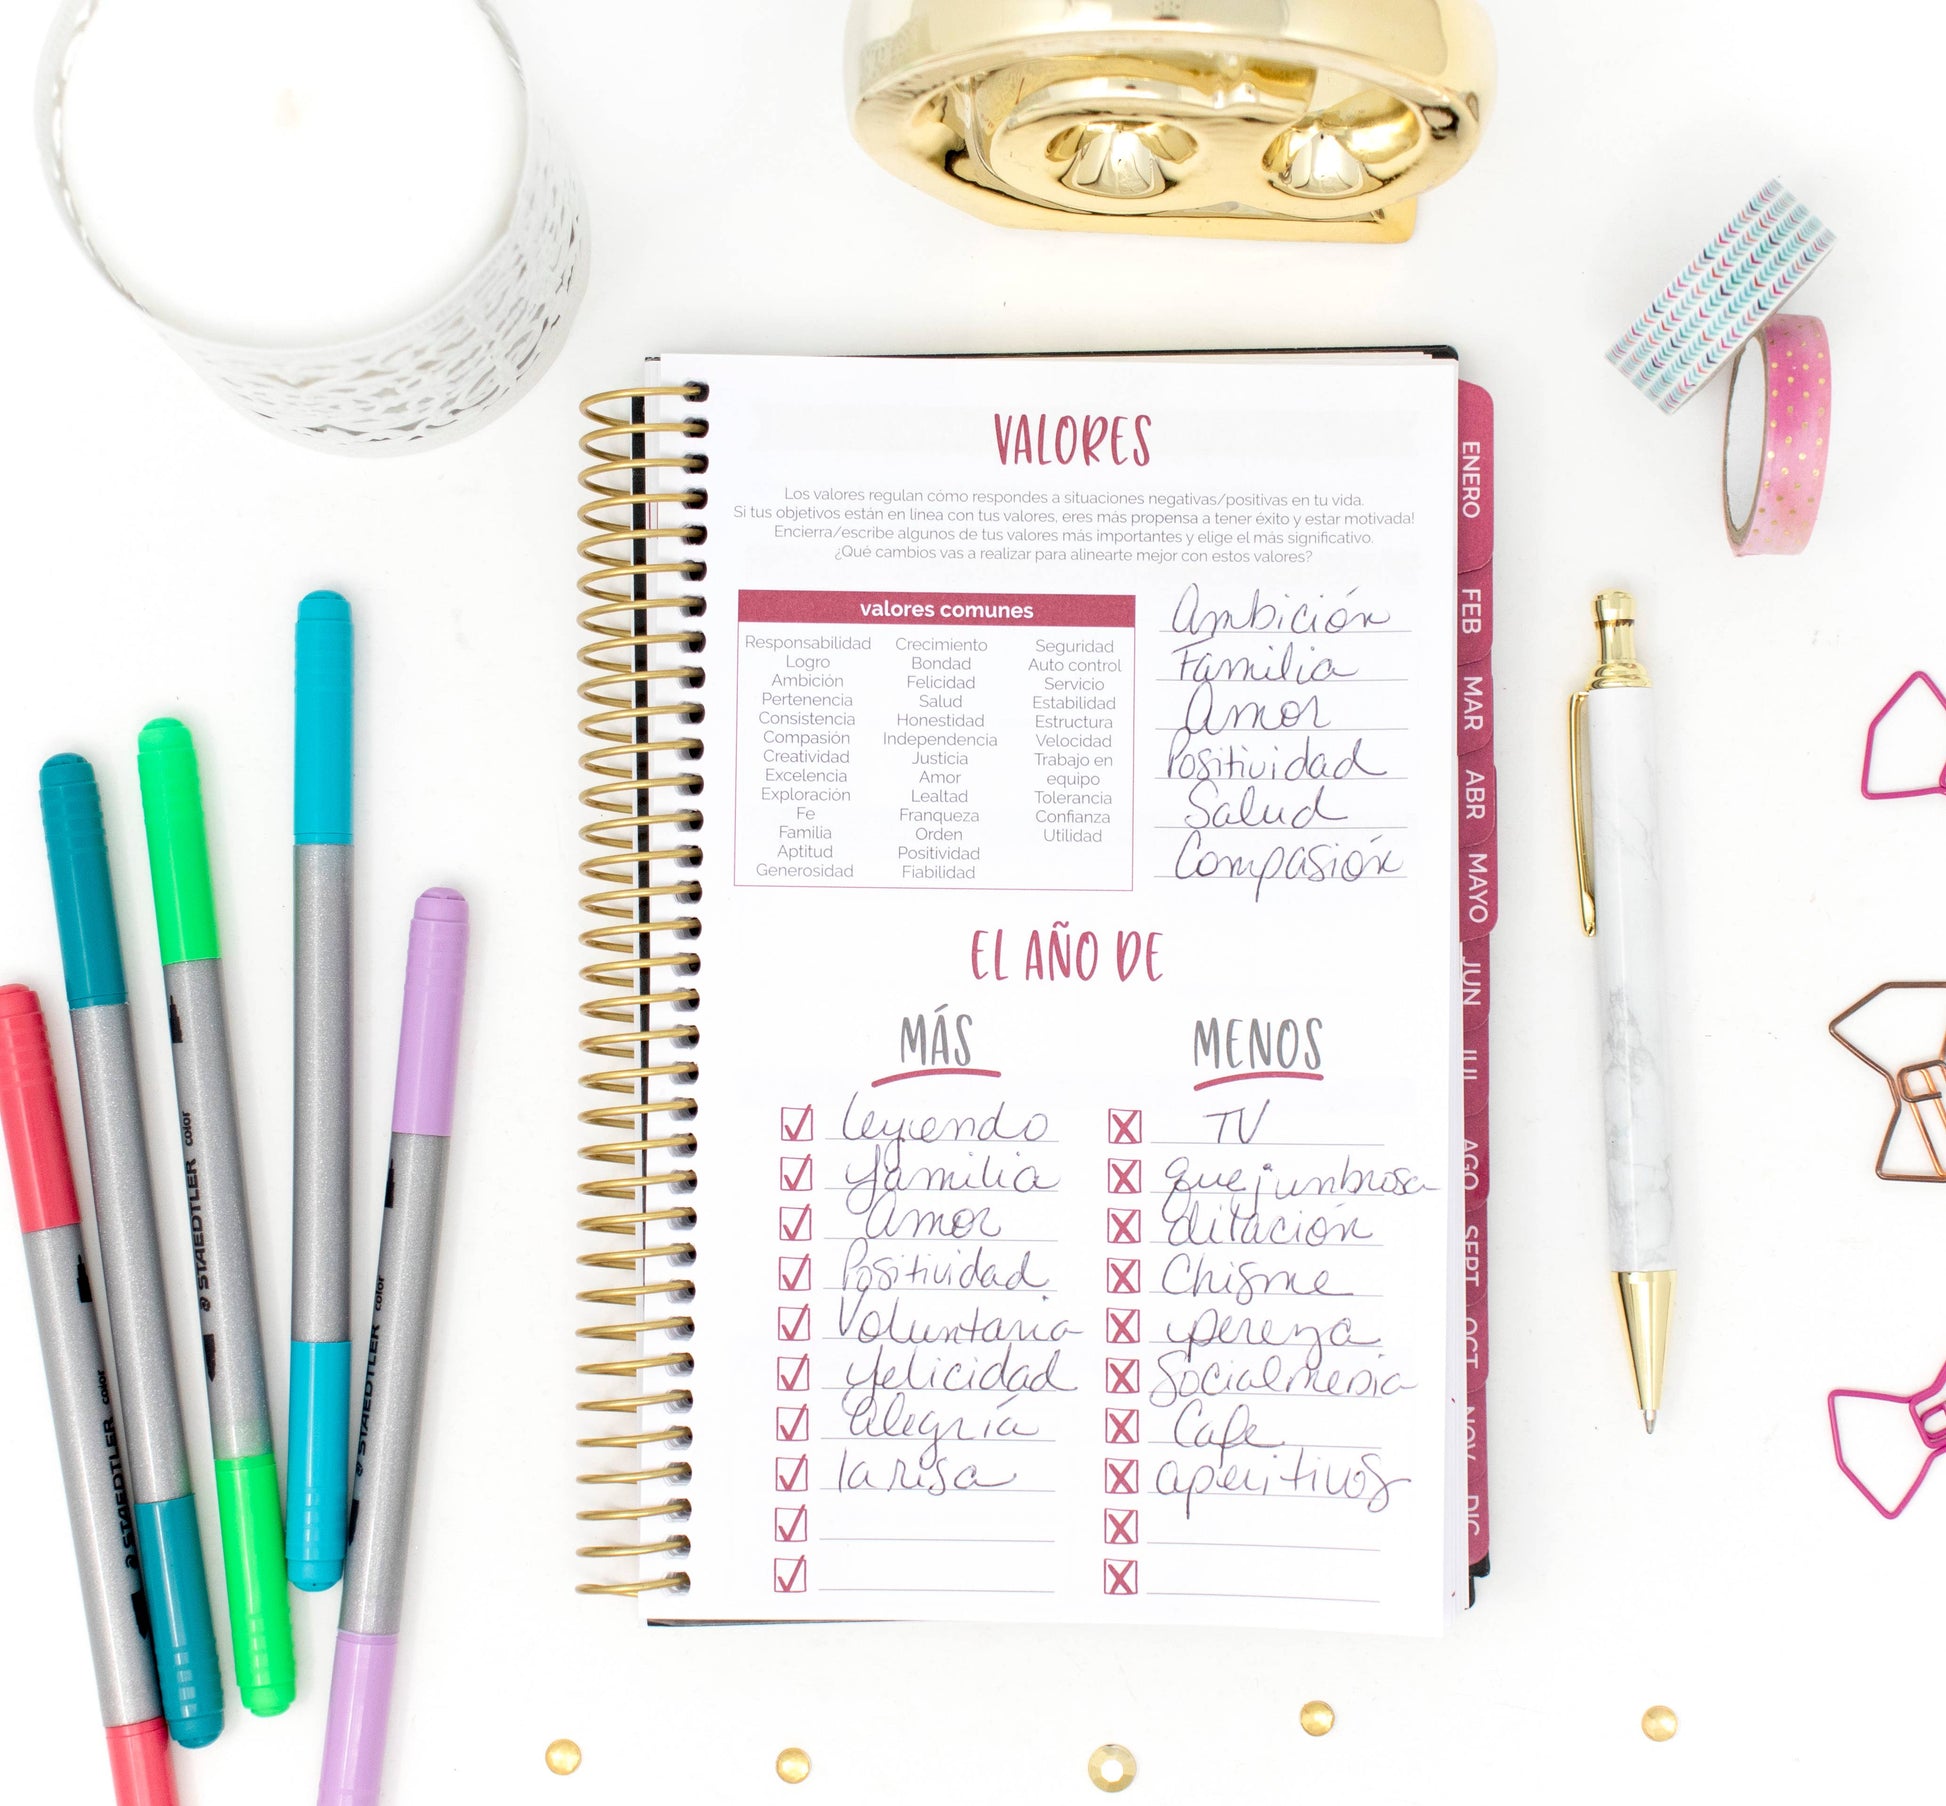 VALORES
Los valores regulan cómo respondes a situaciones negativas/positivas en tu vida.
Si tus objetivos están en línea con tus valores, eres más propensa a tener éxito y estar motivada!
Encierra/escribe algunos de tus valores más importantes y elige el más significativo.
¿Qué cambios vas a realizar para alinearte mejor con estos valores?
valores comunes
Responsabilidad
Logro
Ambición
Pertenencia
Consistencia
Compasión
Creatividad
Excelencia
Exploración
Fe
Familia
Aptitud
Generosidad
Crecimiento
Bondad
Felicidad
Salud
Honestidad
Independencia
Justicia
Amor
Lealtad
Franqueza
Orden
Positividad
Fiabilidad
Seguridad
Auto control
Servicio
Estabilidad
Estructura
Velocidad
Trabajo en
equipo
Tolerancia
Confianza
Utilidad
Ambición
Familia
Amor
Positividad
Salud
Compasión
EL AÑO DE
MÁS
leyendo
familia
Amor
Positividad
Voluntaria
felicidad
Alegría
la risa
MENOS
TV
quejumbrosa
dilación
Chisme
pereza
Social media
Cafe
aperitivos
ENERO
FEB
MAR
ABR
MAYO
JUN
JUL
AGO
SEPT
OCT
NOV
DIC
STAEDTLER color
STAEDTLER color
STAEDTLER color